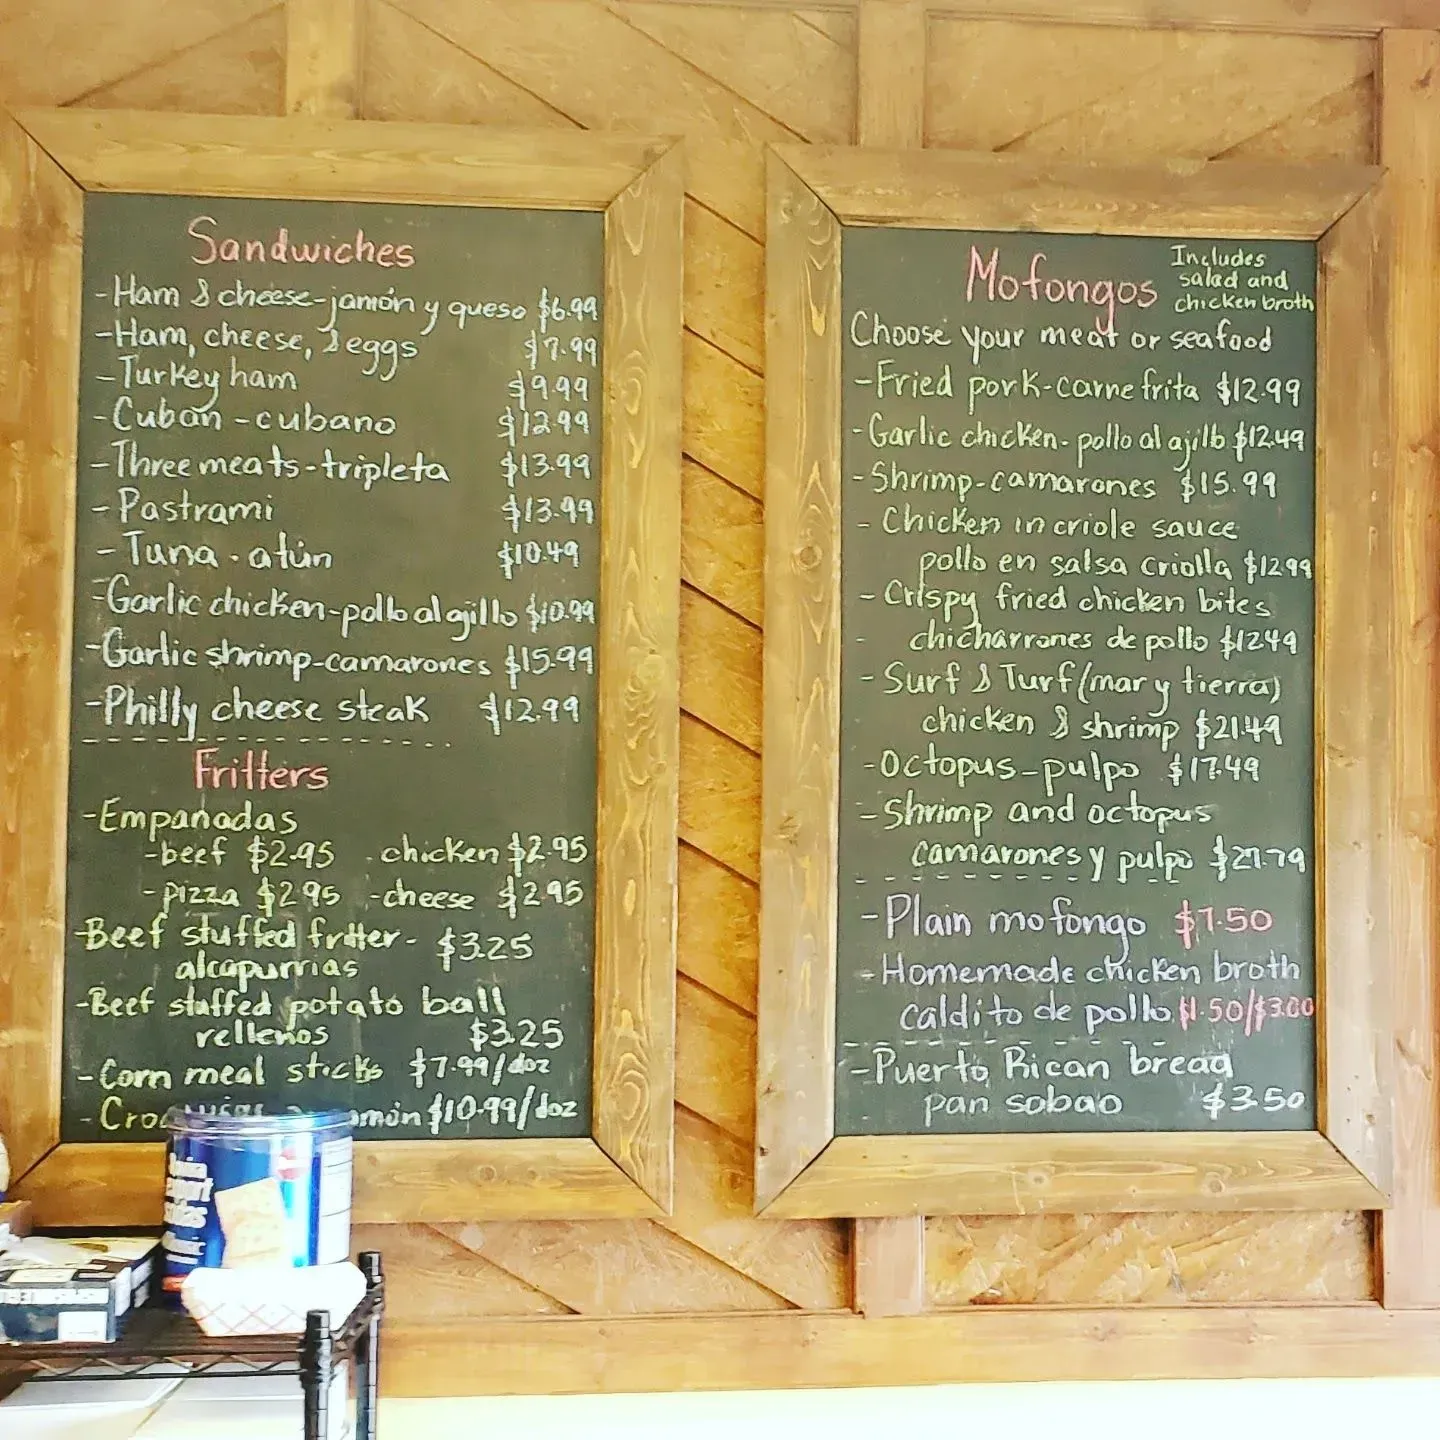 Sandwiches
-Ham & cheese-jamón y queso $6.99
-Ham, cheese, & eggs $7.99
-Turkey ham $9.99
-Cuban - cubano $12.99
-Three meats-tripleta $13.99
-Pastrami $13.99
-Tuna - atún $10.49
-Garlic chicken-pollo al ajillo $10.99
-Garlic shrimp-camarones $15.99
-Philly cheese steak $12.99
Fritters
-Empanadas
-beef $2.95 -chicken $2.95
-pizza $2.95 -cheese $2.95
-Beef stuffed fritter- $3.25
alcapurrias
-Beef stuffed potato ball
rellenos $3.25
-Corn meal sticks $7.99/doz
$10.99/doz
Mofongos
Includes
salad and
chicken broth
Choose your meat or seafood
-Fried pork-carne frita $12.99
-Garlic chicken-pollo al ajillo $12.49
-Shrimp-camarones $15.99
-Chicken in criole sauce
pollo en salsa criolla $12.99
-Crispy fried chicken bites
- chicharrones de pollo $12.49
-Surf & Turf (mar y tierra)
chicken & shrimp $21.49
-Octopus-pulpo $17.49
-Shrimp and octopus
camarones y pulpo
-Plain mofongo $7.50
-Homemade chicken broth
caldito de pollo $1.50/$3.00
-Puerto Rican bread
pan sobao $3.50